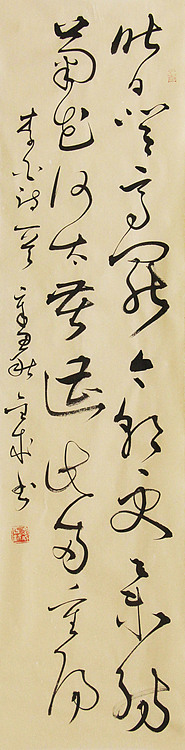 昨日登高罢今朝更举觞
菊花何太苦遭此两重阳
李白诗一首